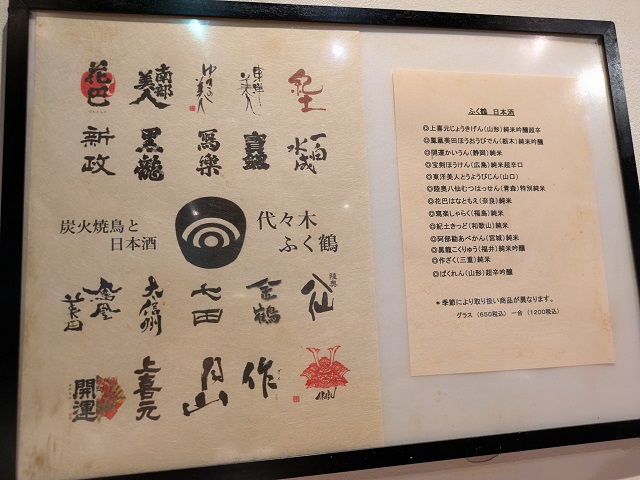 花巴
南部美人
ゆきの美人
東洋美人
紀土
新政
黒龍
寫樂
一白水成
炭火焼鳥と
日本酒
代々木
ふく鶴
鳳凰美田
大信州
七田
金鶴
陸奥
八仙
開運
上喜元
月山
作
ふく鶴 日本酒
◎上喜元じょうきげん(山形)純米吟醸超辛
◎鳳凰美田ほうおうびでん(栃木)純米吟醸
◎開運かいうん(静岡)純米
◎宝剣ほうけん(広島)純米超辛口
◎東洋美人とうようびじん(山口)
◎陸奥八仙むつはっせん(青森)特別純米
◎花巴はなともえ(奈良)純米
◎寫楽しゃらく(福島)純米
◎紀土きっど(和歌山)純米
◎阿部勘あべかん(宮城)純米
◎黒龍こくりゅう(福井)純米吟醸
◎作ざく(三重)純米
◎ばくれん(山形)超辛吟醸
*季節により取り扱い商品が異なります。
グラス (650税込) 一合 (1200税込)